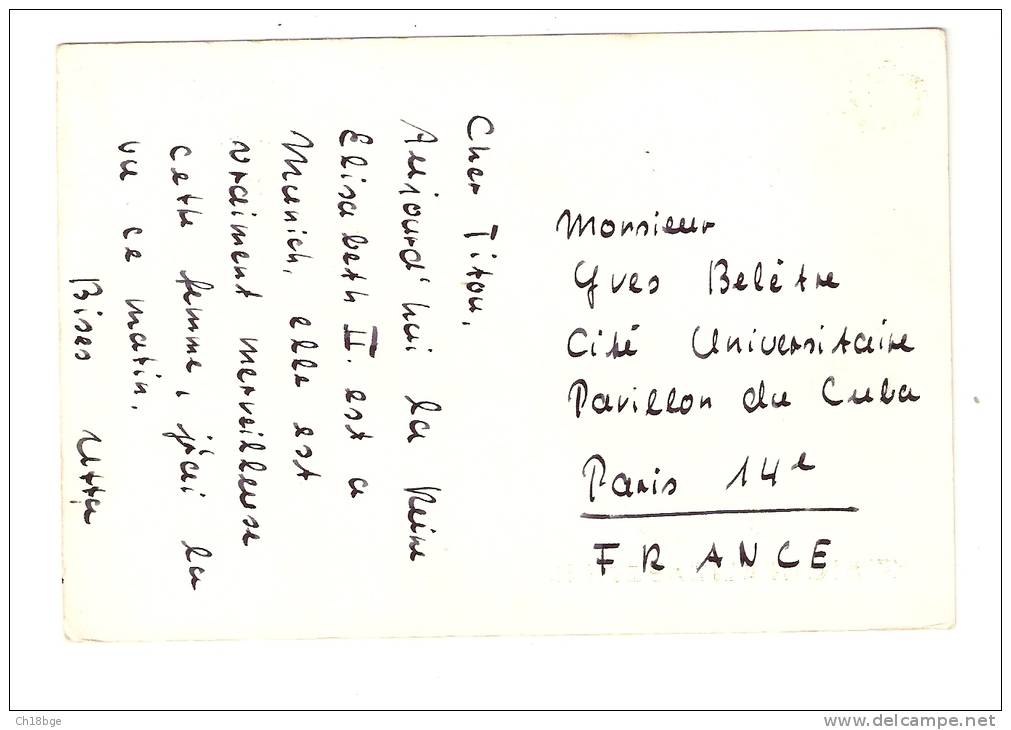 Cher Titou,
Aujourd'hui la Reine
Elisabeth II. est a
Munich, elle est
vraiment merveilleuse
cette femme, j'ai la
vu ce matin.
Bises Utta
Monsieur
Yves Belêtre
Cité Universitaire
Pavillon du Cuba
Paris 14e
FRANCE
Ch18bge
www.delcampe.net